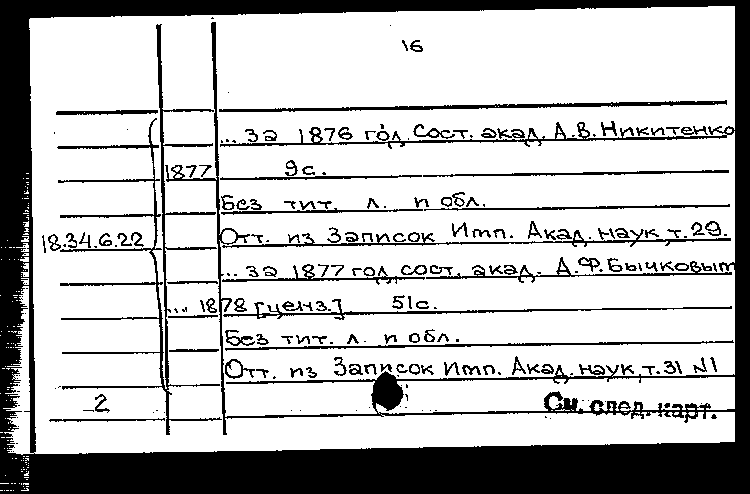 16
... за 1876 год. Сост. акад. А.В. Никитенко
1877 9 с.
Без тит. л. и обл.
18.34.6.22 Отт. из Записок Имп. Акад. наук, т. 29.
... за 1877 год, сост. акад. А.Ф. Бычковым
... 1878 [ценз.] 51 с.
Без тит. л. и обл.
Отт. из Записок Имп. Акад. наук, т. 31 №1
2 См. след. карт.